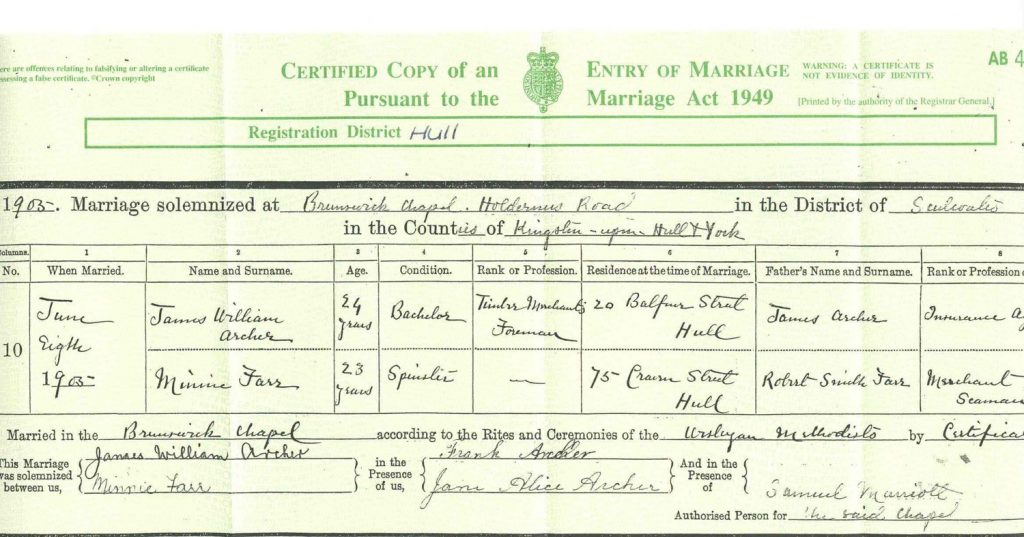 ere are offences relating to falsifying or altering a certificate
ssessing a false certificate. ©Crown copyright
CERTIFIED COPY OF AN ENTRY OF MARRIAGE
WARNING: A CERTIFICATE IS
NOT EVIDENCE OF IDENTITY.
AB 4
Pursuant to the Marriage Act 1949
[Printed by the authority of the Registrar General.]
Registration District Hull
1905. Marriage solemnized at Brunswick Chapel. Holderness Road in the District of Sculcoates
in the Counties of Kingston-upon-Hull & York
Columns. 1 2 3 4 5 6 7 8
No. When Married. Name and Surname. Age. Condition. Rank or Profession. Residence at the time of Marriage. Father's Name and Surname. Rank or Profession o
10
June
Eigth
1905
James William
Archer
24
years
Bachelor
Timber Merchants
Foreman
20 Balfour Street
Hull
James Archer
Insurance Ag
Minnie Farr
23
years
Spinster
—
75 Craven Street
Hull
Robert Smith Farr
Merchant
Seaman
Married in the Brunswick Chapel according to the Rites and Ceremonies of the Wesleyan Methodists by Certifica
This Marriage
was solemnized
between us,
James William Archer
Minnie Farr
in the
Presence
of us,
Frank Archer
Jane Alice Archer
And in the
Presence
of
Samuel Marriott
Authorised Person for the said Chapel